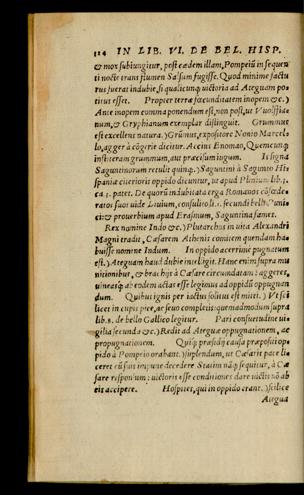 114 IN LIB. VI. DE BEL. HISP.
& mox subiungitur, post eadem illam, Pompeiū in sequen
ti nocte trans flumen Salsum fugisse. Quod minime factu
rus fuerat indubie, si qualicunq; victoria ad Ateguam po
titus esset. Propter terræ fœcunditatem inopem &c.)
Ante inopem comma ponendum est, non post, ut
& Gryphianum exemplar distinguit. Grummus
est excellens natura.) Grūmus, expositore Nonio Marcel-
lo, agger à cōgerie dicitur. Accius Enomao, Quemcunq;
institeram grummum, aut præcisum iugum. Is signa
Saguntinorum retulit quinq;.) Saguntini à Sagunto Hi-
spaniæ citerioris oppido dicuntur, ut apud Plinium lib. 3.
ca. 3. patet. De quorū indubitata erga Romanos cōfœde-
ratos suos uide Liuium, consulto li. 1. secundi belli Puni-
ci: & prouerbium apud Erasmum, Saguntina fames.
Rex nomine Indo &c.) Plutarchus in uita Alexandri
Magni tradit, Cæsarem Athenis comitem quendam ha-
buisse nomine Indum. In oppido acerrime pugnatum
est.) Ateguam haud dubie intelligit. Hanc enim supra mu
nitionibus, & brachijs à Cæsare circundatam: aggeres,
uineasq; ab eodem actas esse legimus ad oppidū oppugnan
dum. Quibus ignis per iactus solitus est mitti.) Vt sci
licet in cupis pice, ac seuo completis: quemadmodum supra
lib. 8. de bello Gallico legitur. Pari consuetudine ui-
gilia secunda &c.) Redit ad Ateguæ oppugnationem, ac
propugnationem. Quiq; præsidij causa præpositi op-
pido à Pompeio orabant.) suplendum, ut Cæsaris pace li-
ceret cū suis impune decedere Statim nāq; sequitur, à Cæ
sare responsum: uictoris esse conditiones dare uictis nō ab
eis accipere. Hospites, qui in oppido erant.) scilicet
Ategua